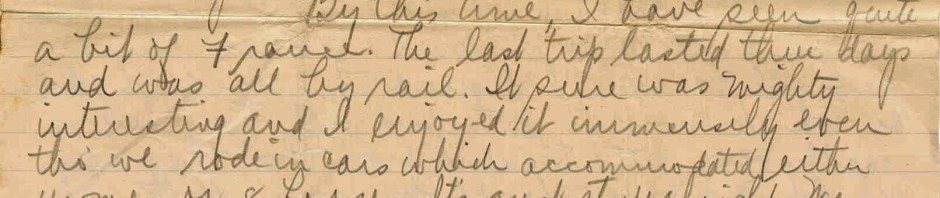 By this time, I have seen quite
a bit of France. The last trip lasted three days
and was all by rail. It sure was mighty
interesting and I enjoyed it immensely even
tho' we rode in cars which accommodated either